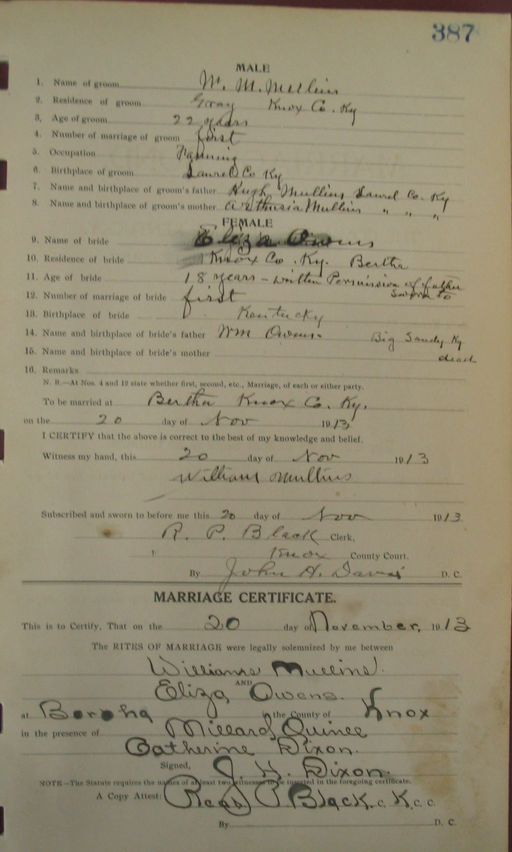 387
MALE
1. Name of groom W. M. Mullins
2. Residence of groom Gray Knox Co. Ky
3. Age of groom 22 years
4. Number of marriage of groom first
5. Occupation Farming
6. Birthplace of groom Laurel Co Ky
7. Name and birthplace of groom's father Hugh Mullins Laurel Co. Ky
8. Name and birthplace of groom's mother Mullins " " "
FEMALE
9. Name of bride Eliza Owens
10. Residence of bride Knox Co. Ky. Bertha
11. Age of bride 18 years - written Permission of father
sworn to
12. Number of marriage of bride first
13. Birthplace of bride Kentucky
14. Name and birthplace of bride's father Wm Owens. Big Sandy Ky
15. Name and birthplace of bride's mother dead
16. Remarks
N. B.—At Nos. 4 and 12 state whether first, second, etc., Marriage, of each or either party.
To be married at Bertha Knox Co. Ky.
on the 20 day of Nov 1913
I CERTIFY that the above is correct to the best of my knowledge and belief.
Witness my hand, this 20 day of Nov 1913
William Mullins
Subscribed and sworn to before me this 20 day of Nov 1913
R. P. Black Clerk,
Knox County Court.
By John H. Davis D. C.
MARRIAGE CERTIFICATE.
This is to Certify, That on the 20 day of November, 1913
The RITES OF MARRIAGE were legally solemnized by me between
Williams Mullins
AND
Eliza Owens.
at in the County of Knox
in the presence of Millard
Catherine Dixon.
Signed, J. H. Dixon.
NOTE—The Statute requires the names of at least two witnesses to be inserted in the foregoing certificate.
A Copy Attest: P Black C. K. C. C.
By D. C.